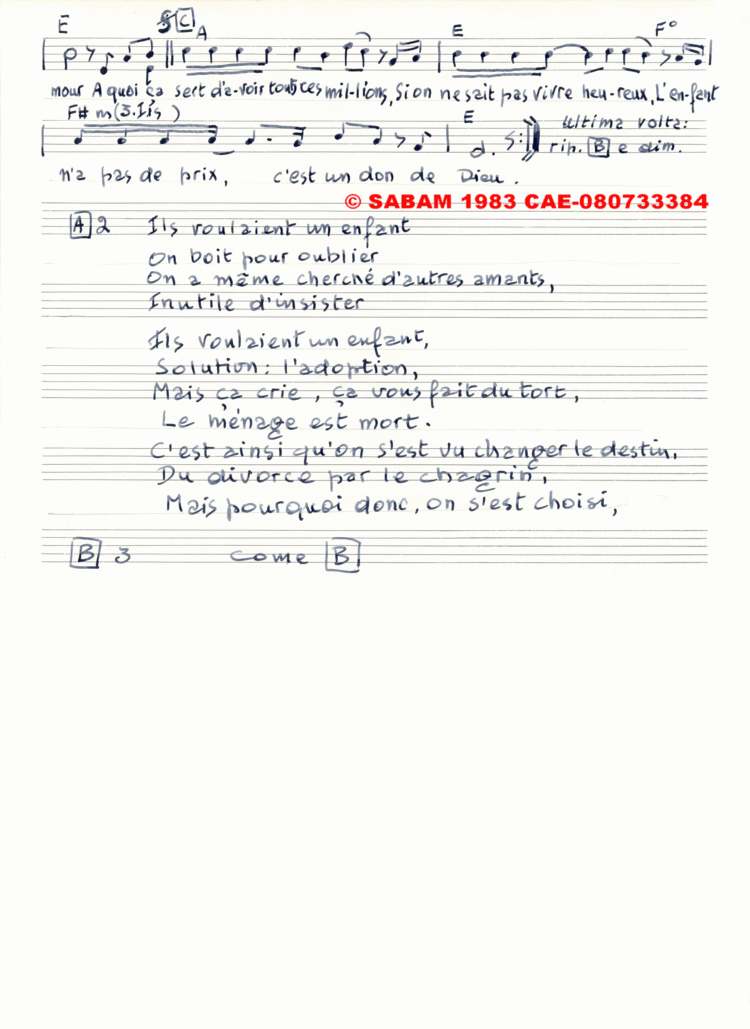 E C A E F°
mour A quoi ça sert d'a-voir tous ces mil-lions, Si on ne sait pas vivre heu-reux, L'en-fant
F# m (3. Ils ) E Ultima volta:
rip. B e dim.
n'a pas de prix, c'est un don de Dieu.
© SABAM 1983 CAE-080733384
A 2 Ils voulaient un enfant
On boit pour oublier
On a même cherché d'autres amants,
Inutile d'insister
Ils voulaient un enfant,
Solution: l'adoption,
Mais ça crie, ça vous fait du tort,
Le ménage est mort.
C'est ainsi qu'on s'est vu changer le destin,
Du divorce par le chagrin,
Mais pourquoi donc, on s'est choisi,
B 3 come B